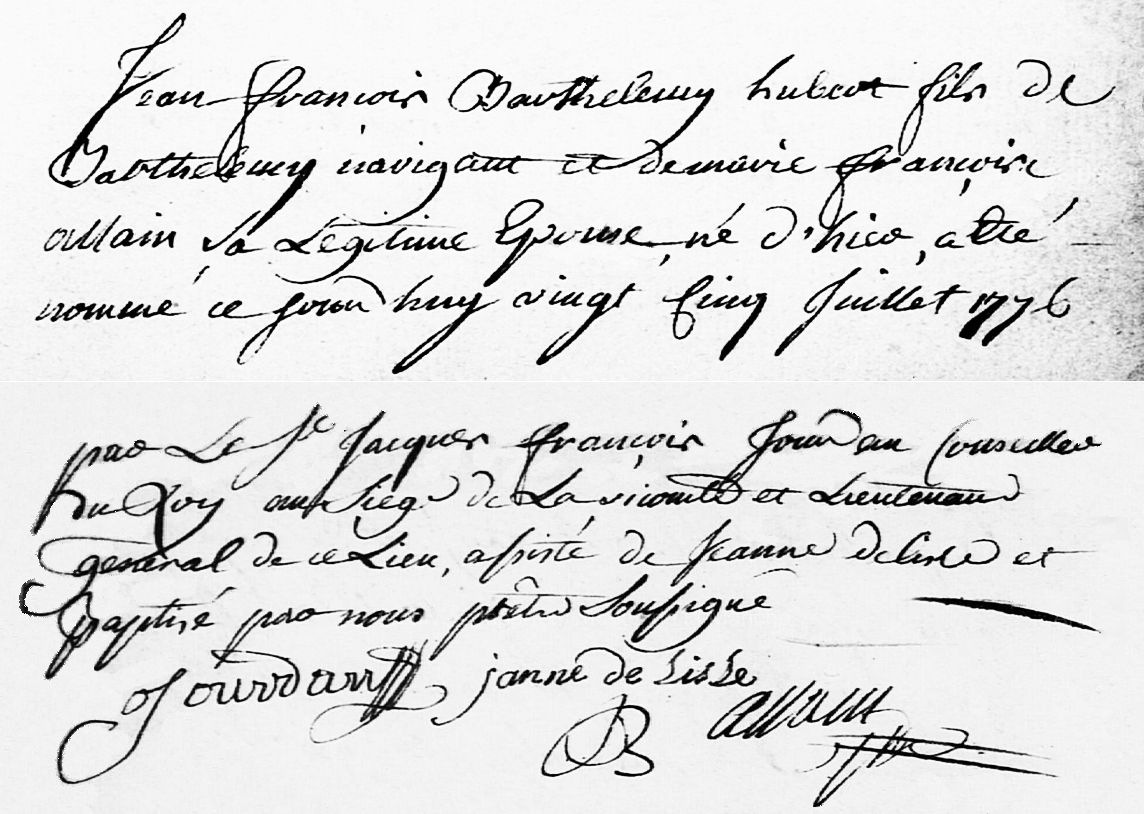 Jean françois Barthelemy hubert fils de
Barthelemy navigant et de marie françoise
allain sa Légitime Epouse né d'hier, a été
nommé ce jourd'huy vingt Cinq Juillet 1776
par Le Sr Jacques françois Jourdan Conseiller
du Roy au Siege de La vicomté et Lieutenant
general de ce Lieu, assisté de Jeanne delisle et
baptisé par nous prêtre Soussigné
Jourdan janne de Lisle
B allain